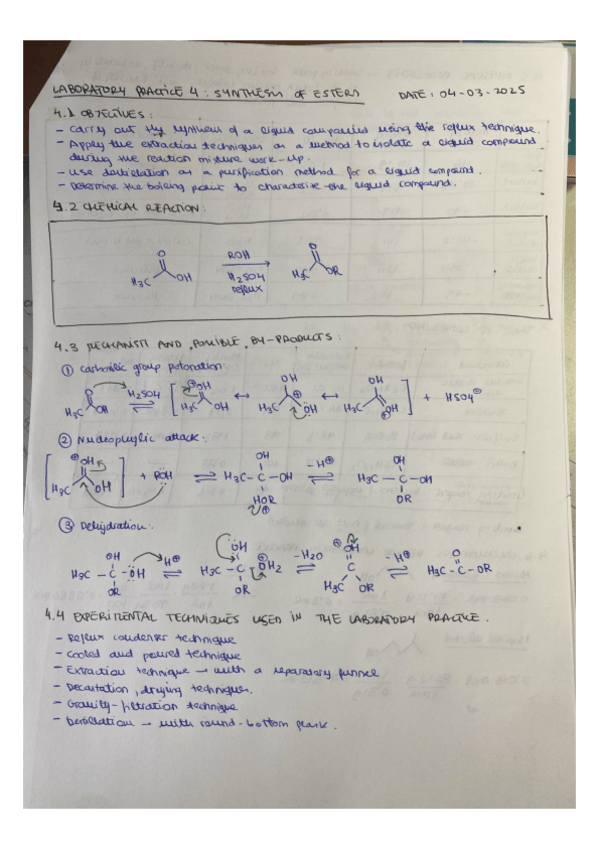 LABORATORY PRACTICE 4 : SYNTHESIS OF ESTERS DATE: 04-03-2025
4.1 OBJECTIVES:
- Carry out the synthesis of a liquid compound using the reflux technique.
- Apply the extraction techniques as a method to isolate a liquid compound
during the reaction mixture work-up.
- Use distillation as a purification method for a liquid compound.
- Determine the boiling point to characterise the liquid compound.
4.2 CHEMICAL REACTION:
O ROH O
H3C OH H2SO4 H3C OR
reflux
4.3 MECHANISM AND POSSIBLE BY-PRODUCTS:
① Carbonilic group protonation:
O H2SO4 [ ⊕OH ↔ OH ↔ OH ] + HSO4⊖
H3C OH ⇌ H3C OH H3C ⊕ ÖH H3C ⊕OH
② Nucleophylic attack:
[ ⊕OH OH OH
H3C OH ] + RÖH ⇌ H3C-C-OH -H⊕ ⇌ H3C-C-OH
HOR OR
⊕
③ Dehydration:
OH H⊕ ÖH -H2O ⊕OH -H⊕ O
H3C-C-ÖH ⇌ H3C-C-⊕OH2 ⇌ C ⇌ H3C-C-OR
OR OR H3C OR
4.4 EXPERIMENTAL TECHNIQUES USED IN THE LABORATORY PRACTICE.
- Reflux condenser technique
- Cooled and poured technique
- Extraction technique → with a separatory funnel
- Decantation, drying techniques.
- Gravity-filtration technique
- Destillation → with round-bottom flask.